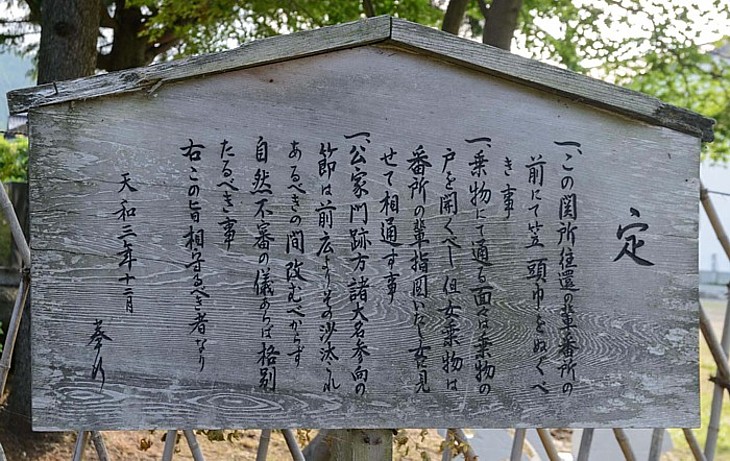 定
一、この関所往還の輩番所の
前にて笠頭巾をぬくべ
き事
一、乗物にて通る面々は乗物の
戸を開くべし但女乗物は
番所の輩指図いたし女見
せて相通す事
一、公家門跡方諸大名参向の
節は前広よりその沙汰これ
あるべきの間改むべからず
自然不審の儀あらば格別
たるべき事
右この旨相守るべき者なり
天和三年十二月
奉行